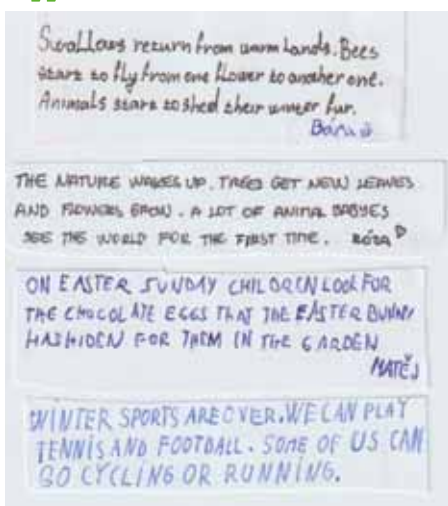 Swallows return from warm lands. Bees
start to fly from one flower to another one.
Animals start to shed their winter fur.
Bára
THE NATURE WAKES UP. TREES GET NEW LEAVES
AND FLOWERS GROW. A LOT OF ANIMAL BABYES
SEE THE WORLD FOR THE FIRST TIME. RÓZA
ON EASTER SUNDAY CHILDREN LOOK FOR
THE CHOCOLATE EGGS THAT THE EASTER BUNNY
HAS HIDEN FOR THEM IN THE GARDEN
MATĚJ
WINTER SPORTS ARE OVER. WE CAN PLAY
TENNIS AND FOOTBALL. SOME OF US CAN
GO CYCLING OR RUNNING.